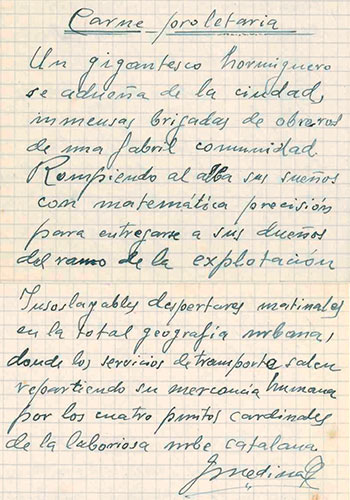 Carne proletaria
Un gigantesco hormiguero
se adueña de la ciudad,
inmensas brigadas de obreros
de una fabril comunidad.
Rompiendo al alba sus sueños
con matemática precisión
para entregarse a sus dueños
del ramo de la explotación
Insoslayables despertares matinales
en la total geografía urbana,
donde los servicios de transporte salen
repartiendo su mercancía humana
por los cuatro puntos cardinales
de la laboriosa urbe catalana.
J Medina